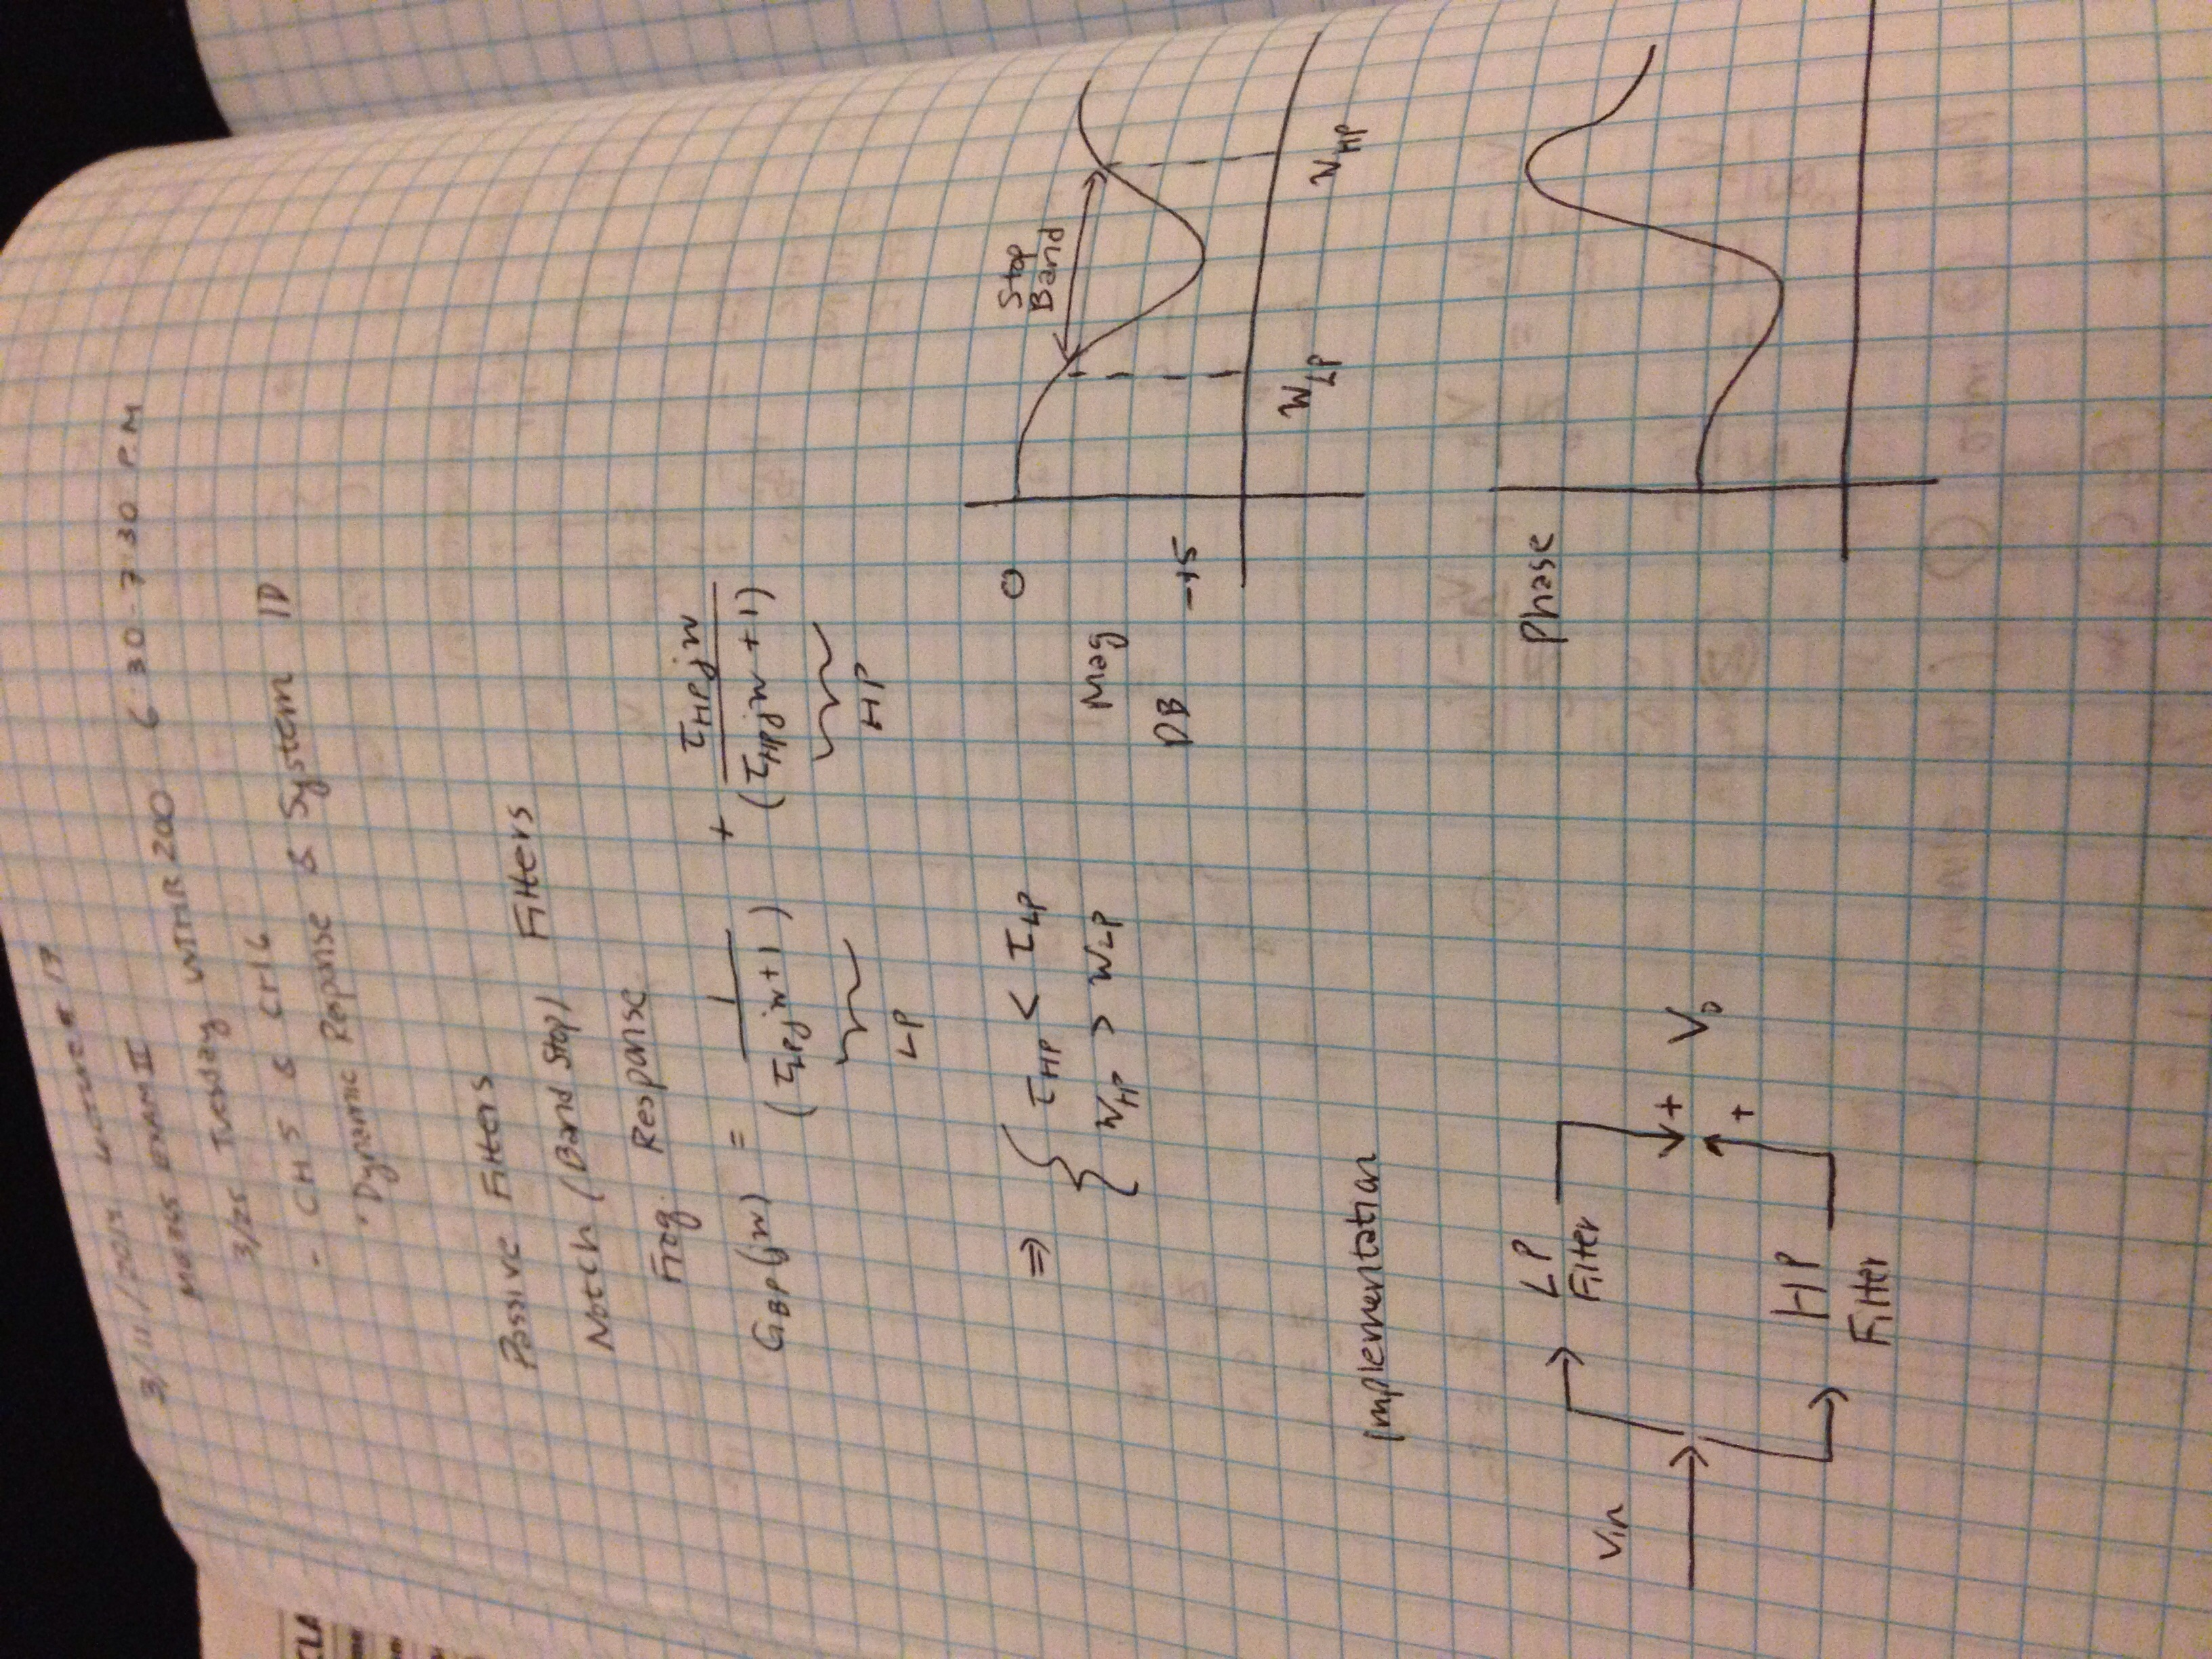 3/11/2014 Lecture # 17
ME 365 EXAM II
3/25 Tuesday WTHR 200 6:30-7:30 P.M
- CH 5 & CH 6
"Dynamic Response & System ID
Passive Filters
Notch (Band Stop) Filters
Freq. Response
G_BP(jw) = 1 / (τ_LP jw+1) + τ_HP jw / (τ_HP jw +1)
LP HP
⇒ { τ_HP < τ_LP
W_HP > W_LP
0
Mag
DB
-15
Stop
Band
W_LP W_HP
Phase
Implementation
Vin
LP
Filter
HP
Filter
+
+
V_o